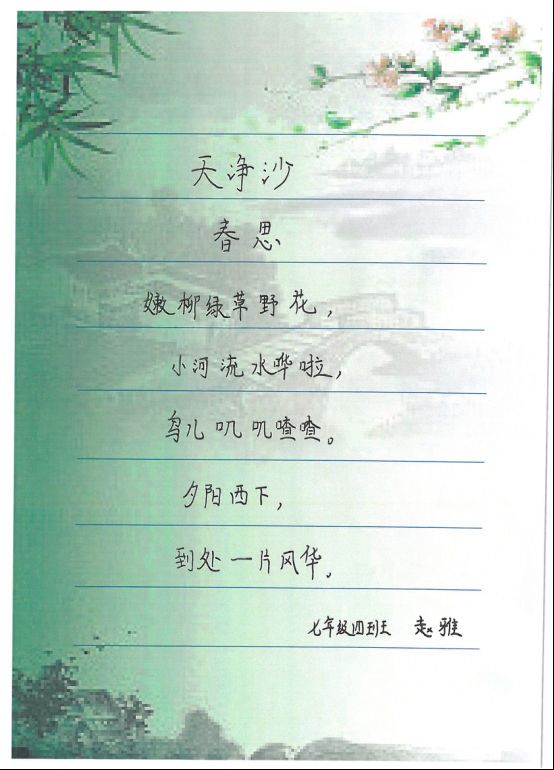 天净沙
春思
嫩柳绿草野花，
小河流水哗啦，
鸟儿叽叽喳喳。
夕阳西下，
到处一片风华。
七年级四班 赵雅